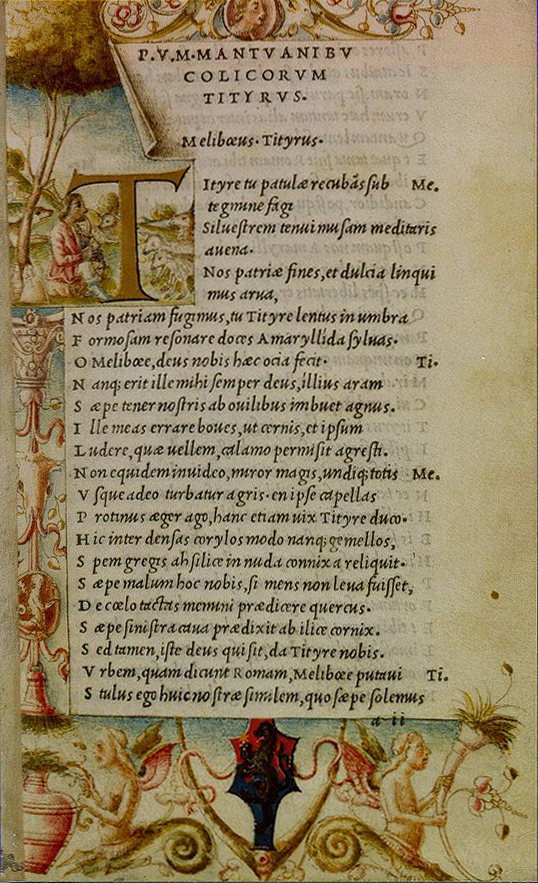 P.V.M.MANTVANI BV
COLICORVM
TITYRVS.
Melibœus.Tityrus.
TItyre tu patulæ recubãs sub Me.
tegmine fagi
Siluestrem tenui musam meditaris
auena.
Nos patriæ fines,et dulcia linqui
mus arua,
Nos patriam fugimus,tu Tityre lentus in umbra
Formosam resonare doces Amaryllida syluas.
O Melibœe,deus nobis hæc ocia fecit. Ti.
Nanq; erit ille mihi semper deus,illius aram
Sæpe tener nostris ab ouilibus imbuet agnus.
Ille meas errare boues,ut cernis,et ipsum
Ludere,quæ uellem,calamo permisit agresti.
Non equidem inuideo,miror magis,undiq; totis Me.
Vsque adeo turbatur agris.en ipse capellas
Protinus æger ago,hanc etiam uix Tityre duco.
Hic inter densas corylos modo nanq; gemellos,
Spem gregis ah silice in nuda connixa reliquit.
Sæpe malum hoc nobis,si mens non leua fuisset,
De cœlo tactas memini prædicere quercus.
Sæpe sinistra caua prædixit ab ilice cornix.
Sed tamen,iste deus qui sit,da Tityre nobis.
Vrbem,quam dicunt Romam,Melibœe putaui Ti.
Stultus ego huic nostræ similem,quo sæpe solemus
a ii